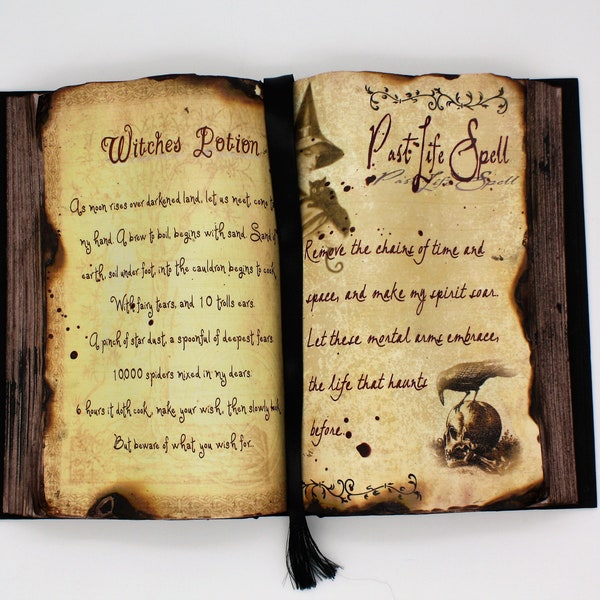 Witches Potion
As moon rises over darkened land, let us meet, come t
my hand. A brew to boil, begins with sand. Sand
earth, soil under foot, into the cauldron begins to cook
With fairy tears, and 10 trolls ears.
A pinch of star dust, a spoonful of deepest fears.
10,000 spiders mixed in my dears.
6 hours it doth cook, make your wish, then slowly
But beware of what you wish for...
Past Life Spell
Past Life Spell
Remove the chains of time and
space, and make my spirit soar.
Let these mortal arms embrace,
the life that haunts
before.